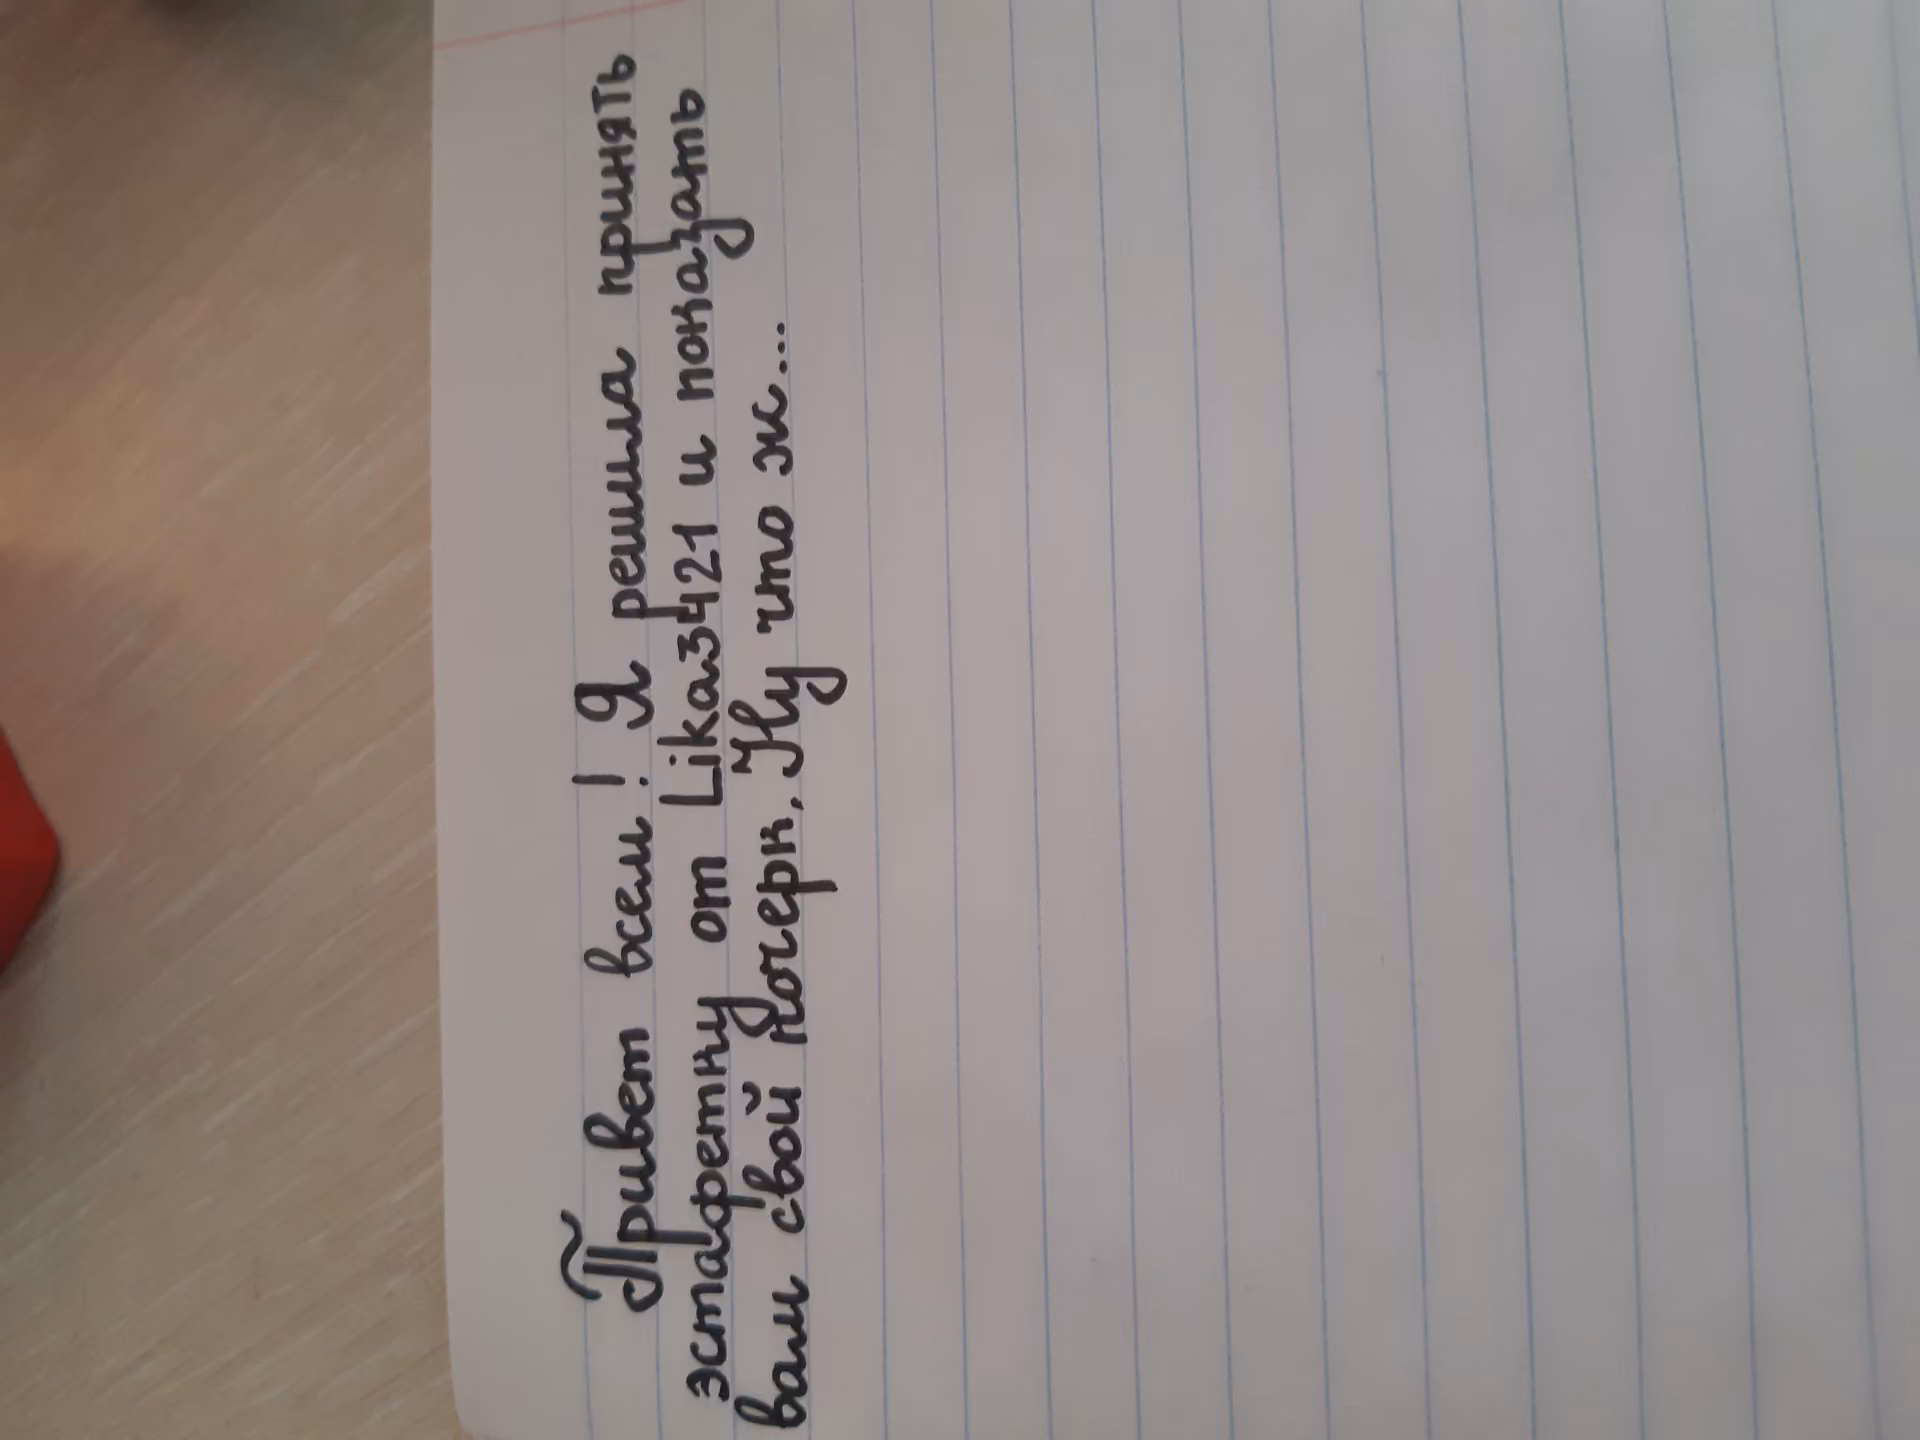 Привет всем! Я решила принять
эстафетку от Lika3421 и показать
вам свой почерк. Ну что ж...